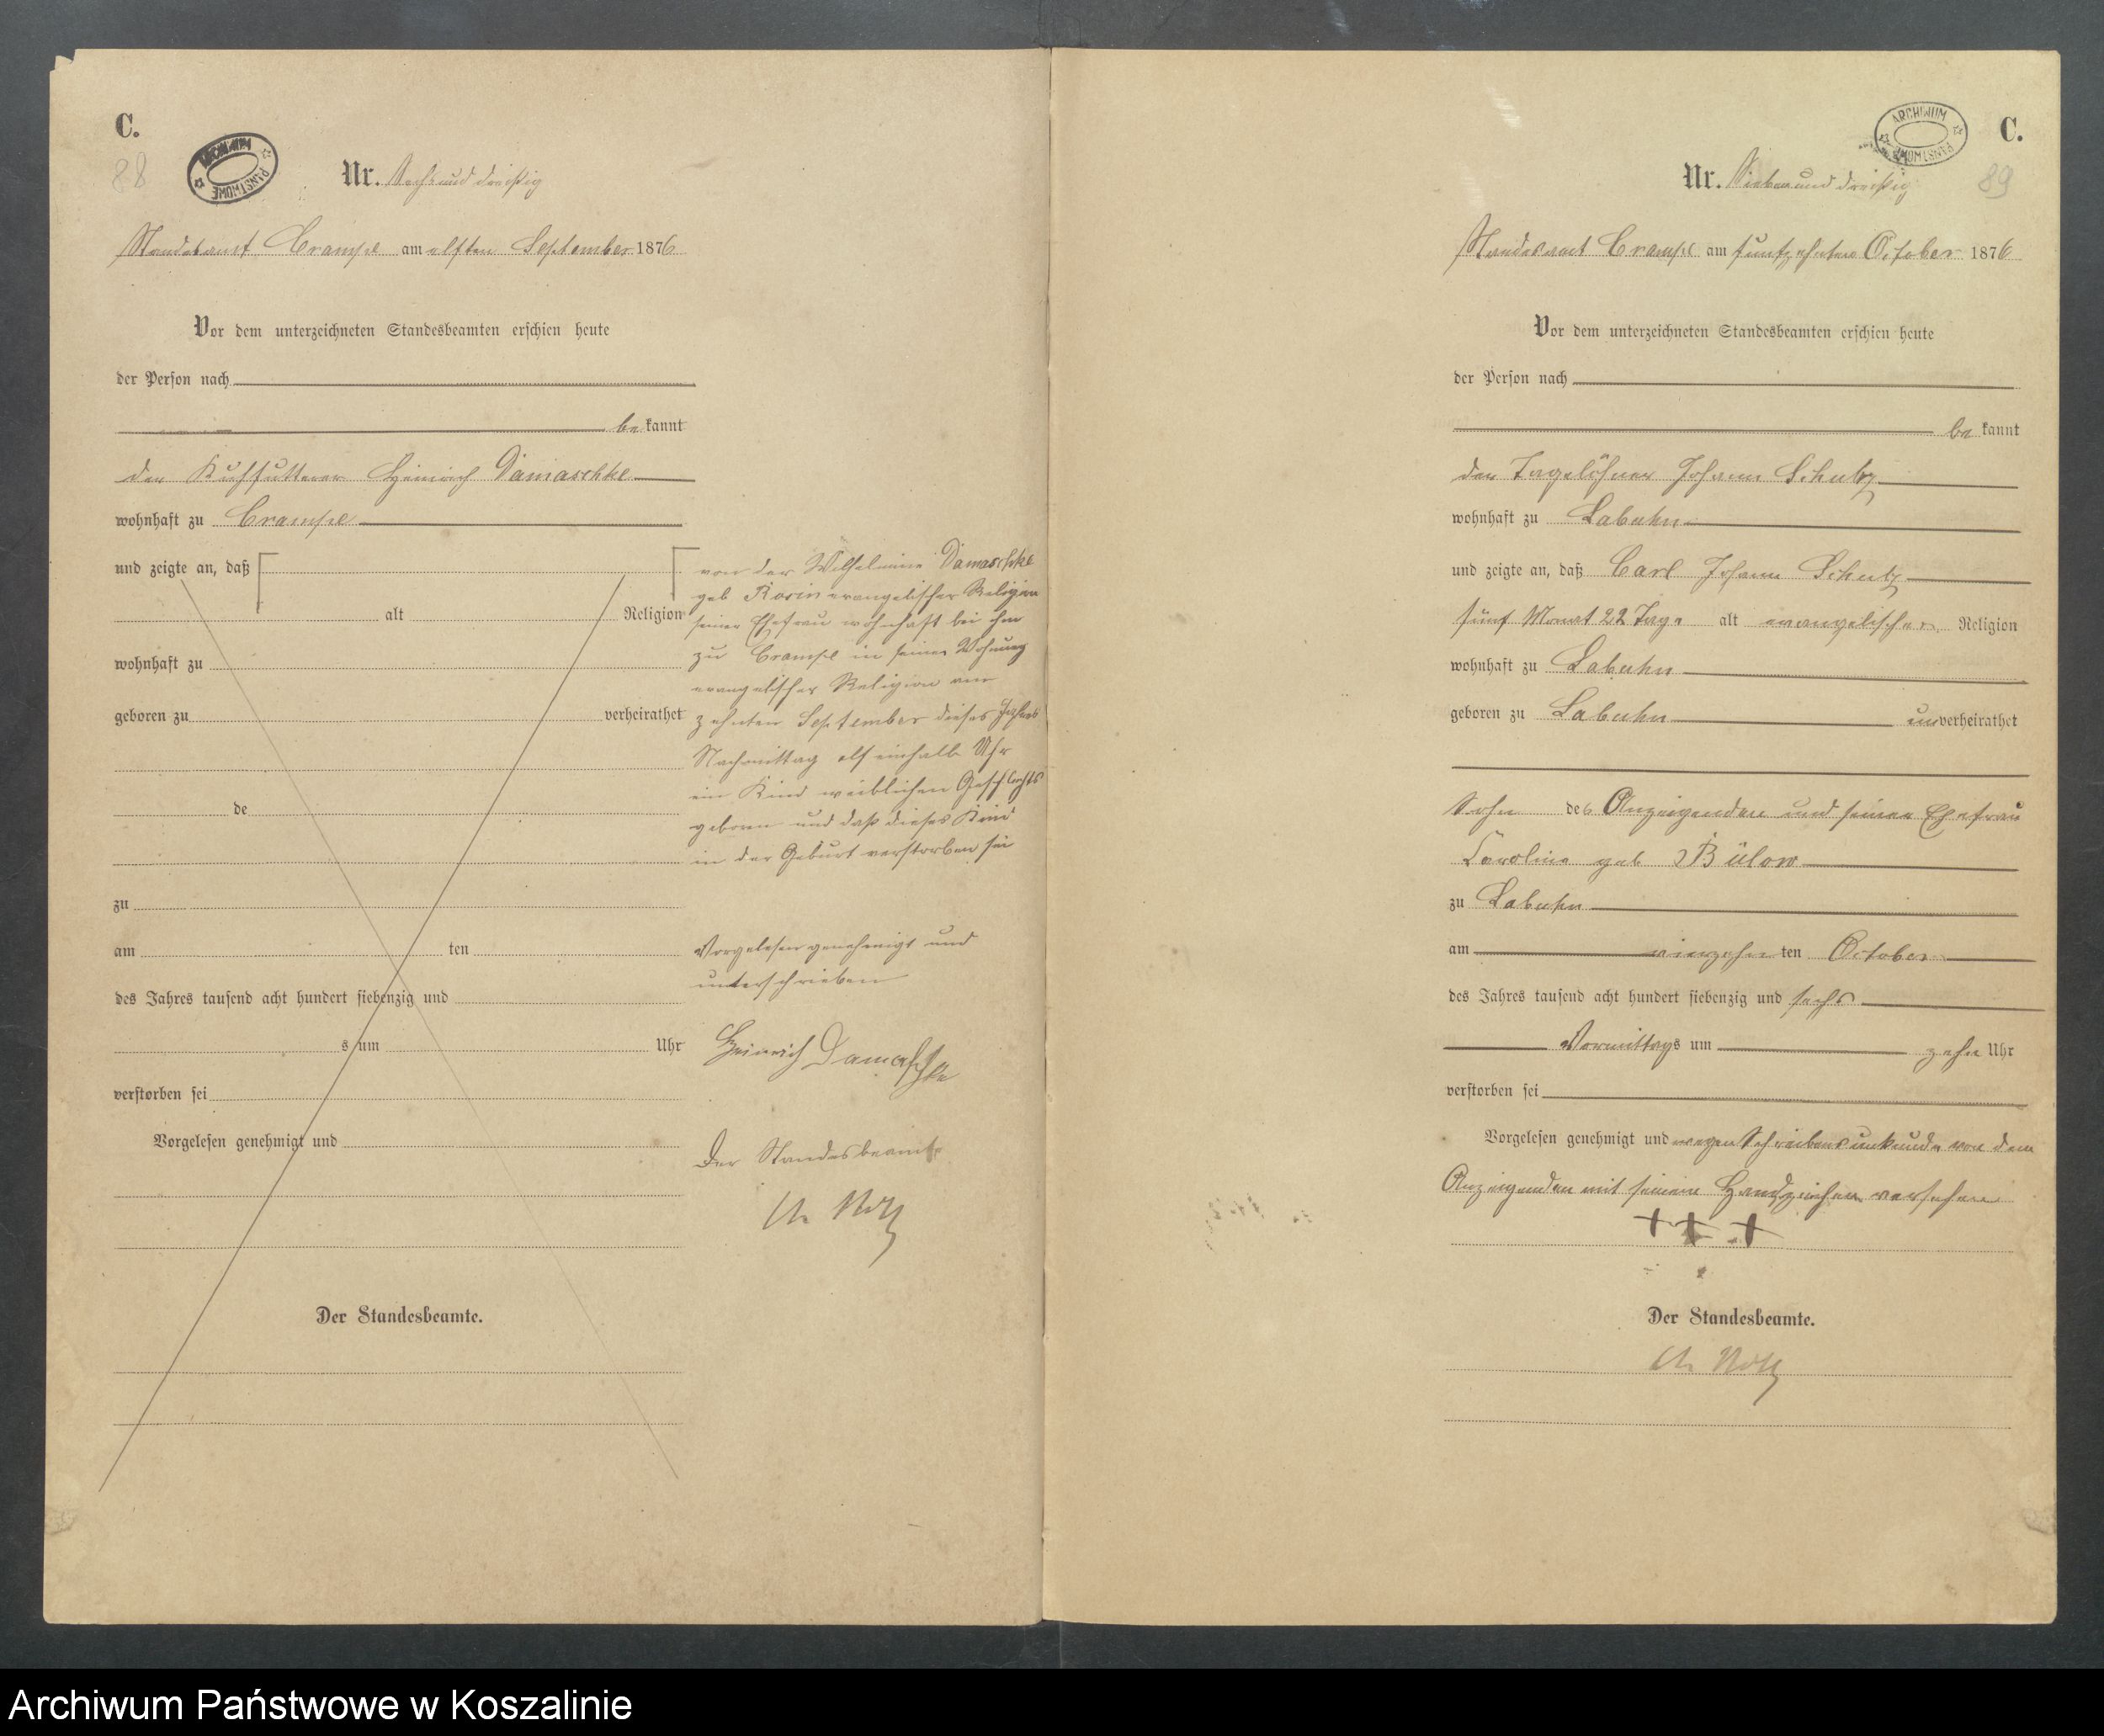 C.
88
ARCHIWUM PAŃSTWOWE
Nr. Sechsund dreißig
Standesamt Crampe am elften September 1876
Vor dem unterzeichneten Standesbeamten erschien heute
der Person nach
be kannt
den Kuhfutterer Heinrich Damaschke
wohnhaft zu Crampe
und zeigte an, daß
alt Religion
wohnhaft zu
geboren zu verheirathet
de
zu
am ten
des Jahres tausend acht hundert siebenzig und
s um Uhr
verstorben sei
Vorgelesen genehmigt und
Der Standesbeamte.
von der Wilhelmine Damaschke
geb Rosin evangelischer Religion
seiner Ehefrau wohnhaft bei ihm
zu Crampe in seiner Wohnung
evangelischer Religion am
zehnten September dieses Jahres
Nachmittag elf einhalb Uhr
ein Kind weiblichen Geschlechts
geboren und daß dieses Kind
in der Geburt verstorben sei
Vorgelesen genehmigt und
unterschrieben
Heinrich Damaschke
Der Standesbeamte
C.
ARCHIWUM PAŃSTWOWE
89
Nr. Sieben und dreißig
Standesamt Crampe am funfzehnten October 1876
Vor dem unterzeichneten Standesbeamten erschien heute
der Person nach
be kannt
der Tagelöhner Johann Schulz
wohnhaft zu Labuhn
und zeigte an, daß Carl Johann Schulz
fünf Monat 22 Tage alt evangelischer Religion
wohnhaft zu Labuhn
geboren zu Labuhn unverheirathet
Sohn des Anzeigenden und seiner Ehefrau
Caroline geb Bülow
zu Labuhn
am vierzehn ten October
des Jahres tausend acht hundert siebenzig und sechs
Vormittags um zehn Uhr
verstorben sei
Vorgelesen genehmigt und wegen Schreibens unkunde von dem
Anzeigenden mit seinem Handzeichen versehen
+ + +
Der Standesbeamte.
Archiwum Państwowe w Koszalinie